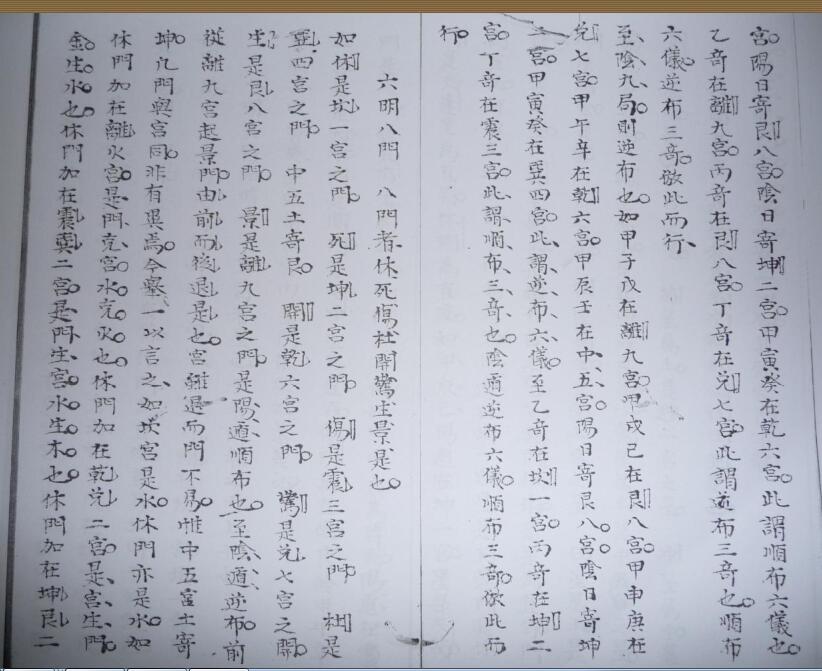 宮陽日寄艮八宮陰日寄坤二宮甲寅癸在乾六宮此謂順布六儀也
乙奇在離九宮丙奇在艮八宮丁奇在兌七宮此謂逆布三奇也順布
六儀逆布三奇倣此而行
至陰九局則逆布也如甲子戊在離九宮甲戌己在艮八宮甲申庚在
兌七宮甲午辛在乾六宮甲辰壬在中五宮陽日寄艮八宮陰日寄坤
二宮甲寅癸在巽四宮此謂逆布六儀至乙奇在坎一宮丙奇在坤二
宮丁奇在震三宮此謂順布三奇也陰遁逆布六儀順布三奇倣此而
行
六明八門 八門者休死傷杜開驚生景是也
如休是坎一宮之門 死是坤二宮之門 傷是震三宮之門 杜是
巽四宮之門 中五土寄艮 開是乾六宮之門 驚是兌七宮之門
生是艮八宮之門 景是離九宮之門是陽遁順布也至陰遁逆布前
從離九宮起景門由前而後退是也宮雖退而門不易惟中五宮土寄
坤凡門與宮同非有異焉今舉一以言之如坎宮是水休門亦是水如
休門加在離火宮是門克宮水克火也休門加在乾兌二宮是宮生門
金生水也休門加在震巽二宮是門生宮水生木也休門加在坤艮二